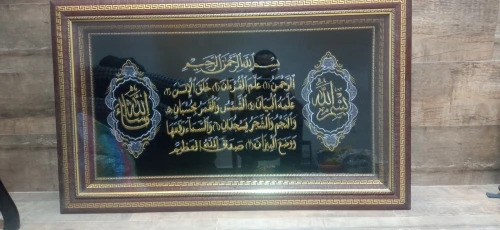 بسم الله الرحمن الرحيم
الرحمن (١) علم القرءان (٢) خلق الإنسن (٣)
علمه البيان (٤) الشمس والقمر بحسبان (٥)
والنجم والشجر يسجدان (٦) والسماء رفعها
ووضع الميزان (٧) صدق الله العظيم
بسم الله
ما شاء الله